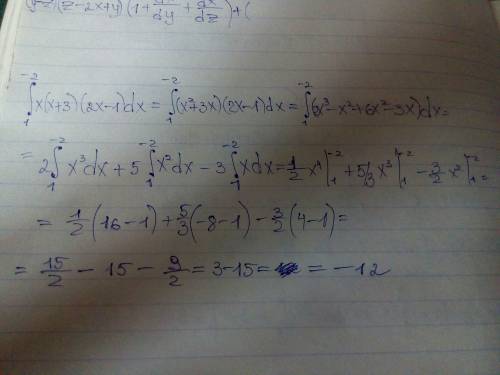 (z-2x+y)(1+
∫₁⁻² x(x+3)(2x-1)dx = ∫₁⁻² (x²+3x)(2x-1)dx = ∫₁⁻² (2x³-x²+6x²-3x)dx =
= 2∫₁⁻² x³dx + 5∫₁⁻² x²dx - 3∫₁⁻² xdx = 1/2 x⁴|₁⁻² + 5/3 x³|₁⁻² - 3/2 x²|₁⁻² =
= 1/2 (16-1) + 5/3 (-8-1) - 3/2 (4-1) =
= 15/2 - 15 - 9/2 = 3-15 = = -12